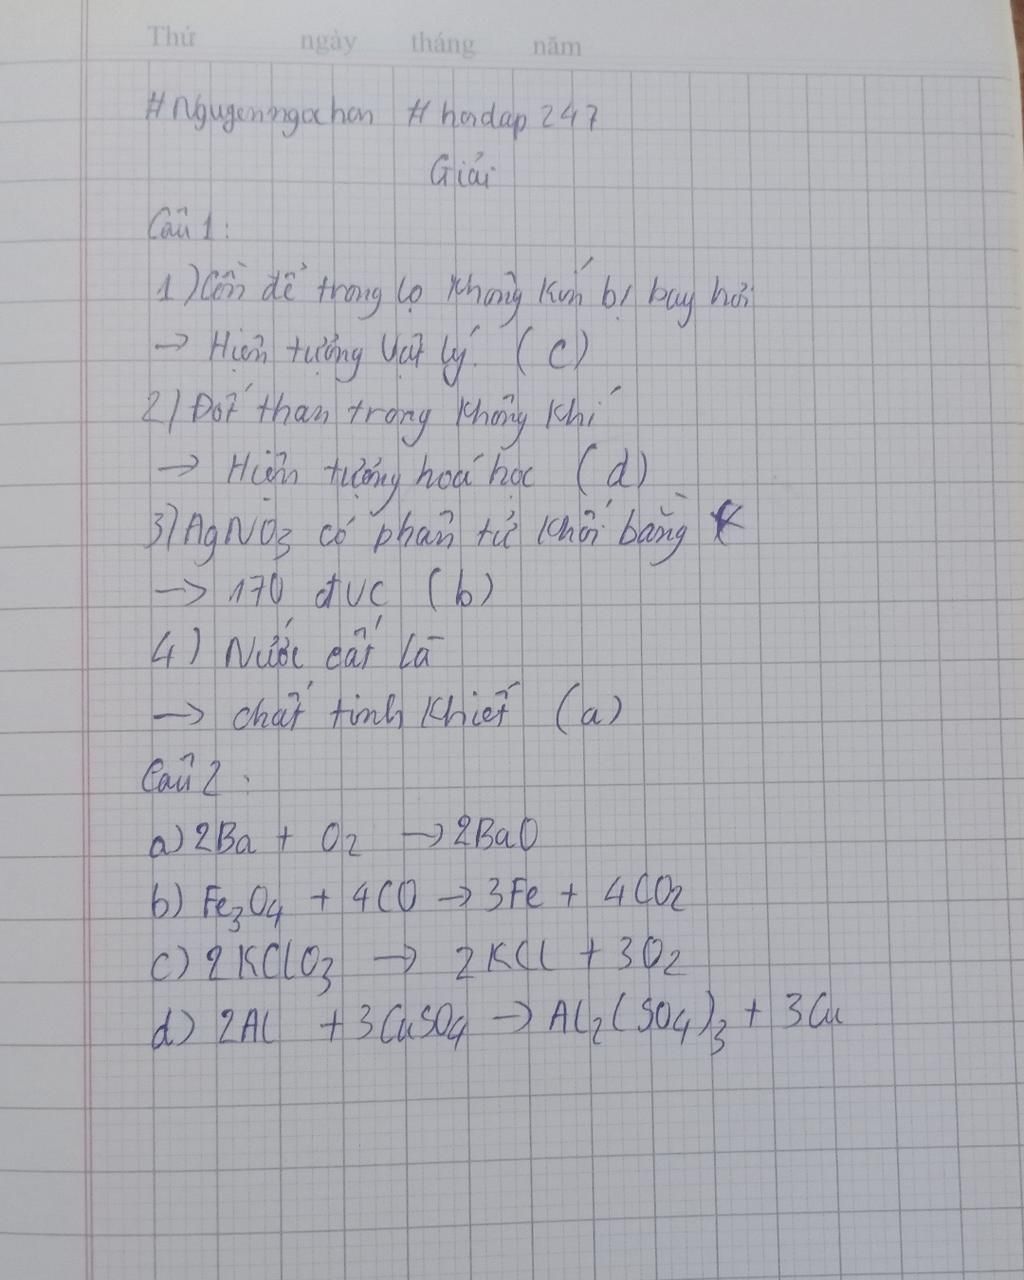 Thứ ngày tháng năm
#Nguyenngochan #hoidap247
Giải
Câu 1:
1) Cồn để trong lọ không kín bị bay hơi
→ Hiện tượng vật lý. (c)
2) Đốt than trong không khí
→ Hiện tượng hoá học (d)
3) AgNO₃ có phân tử khối bằng
→ 170 đvc (b)
4) Nước cất là
→ chất tinh khiết (a)
Câu 2:
a) 2Ba + O₂ → 2BaO
b) Fe₃O₄ + 4CO → 3Fe + 4CO₂
c) 2KClO₃ → 2KCl + 3O₂
d) 2Al + 3CuSO₄ → Al₂(SO₄)₃ + 3Cu